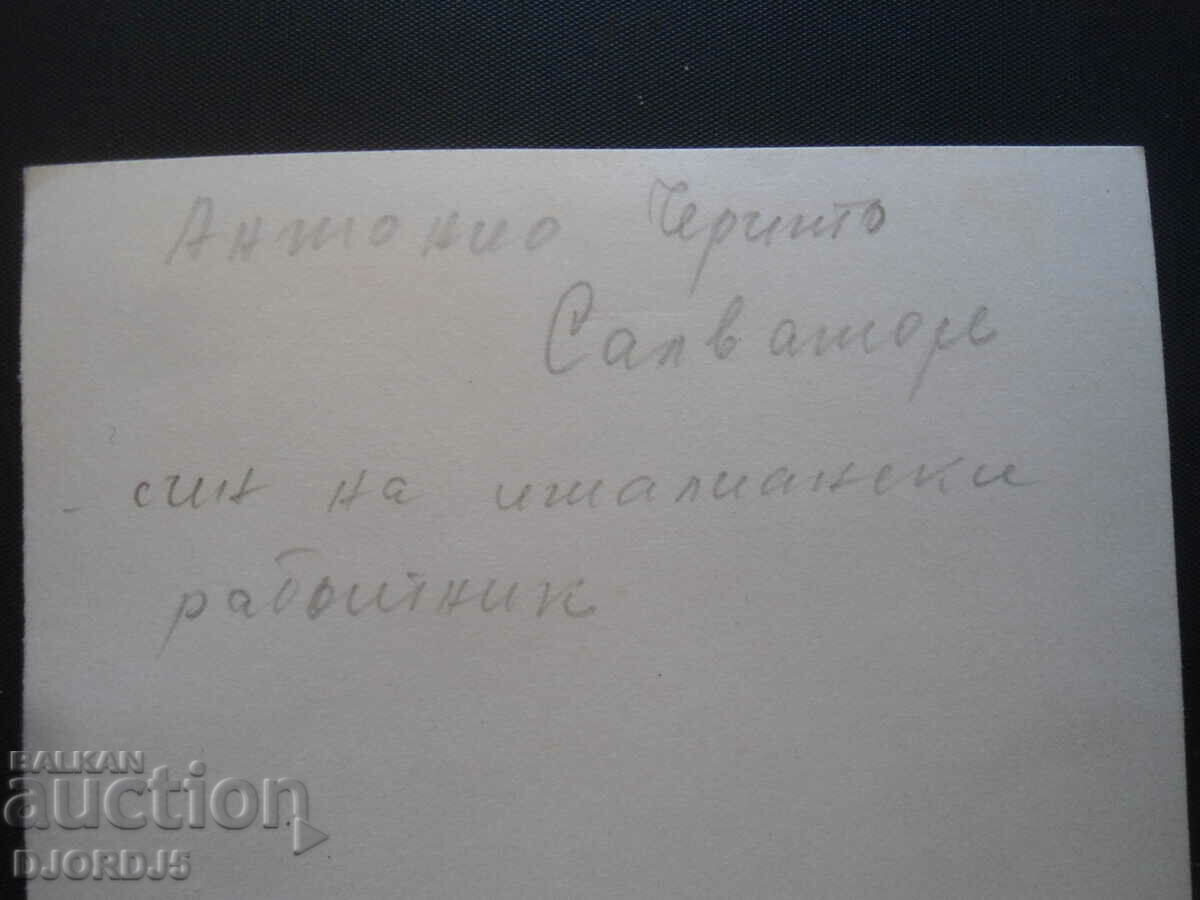 Антонио Черинто
Салваторе
- син на италиански
работник
BALKAN
auction
DJORDJ5